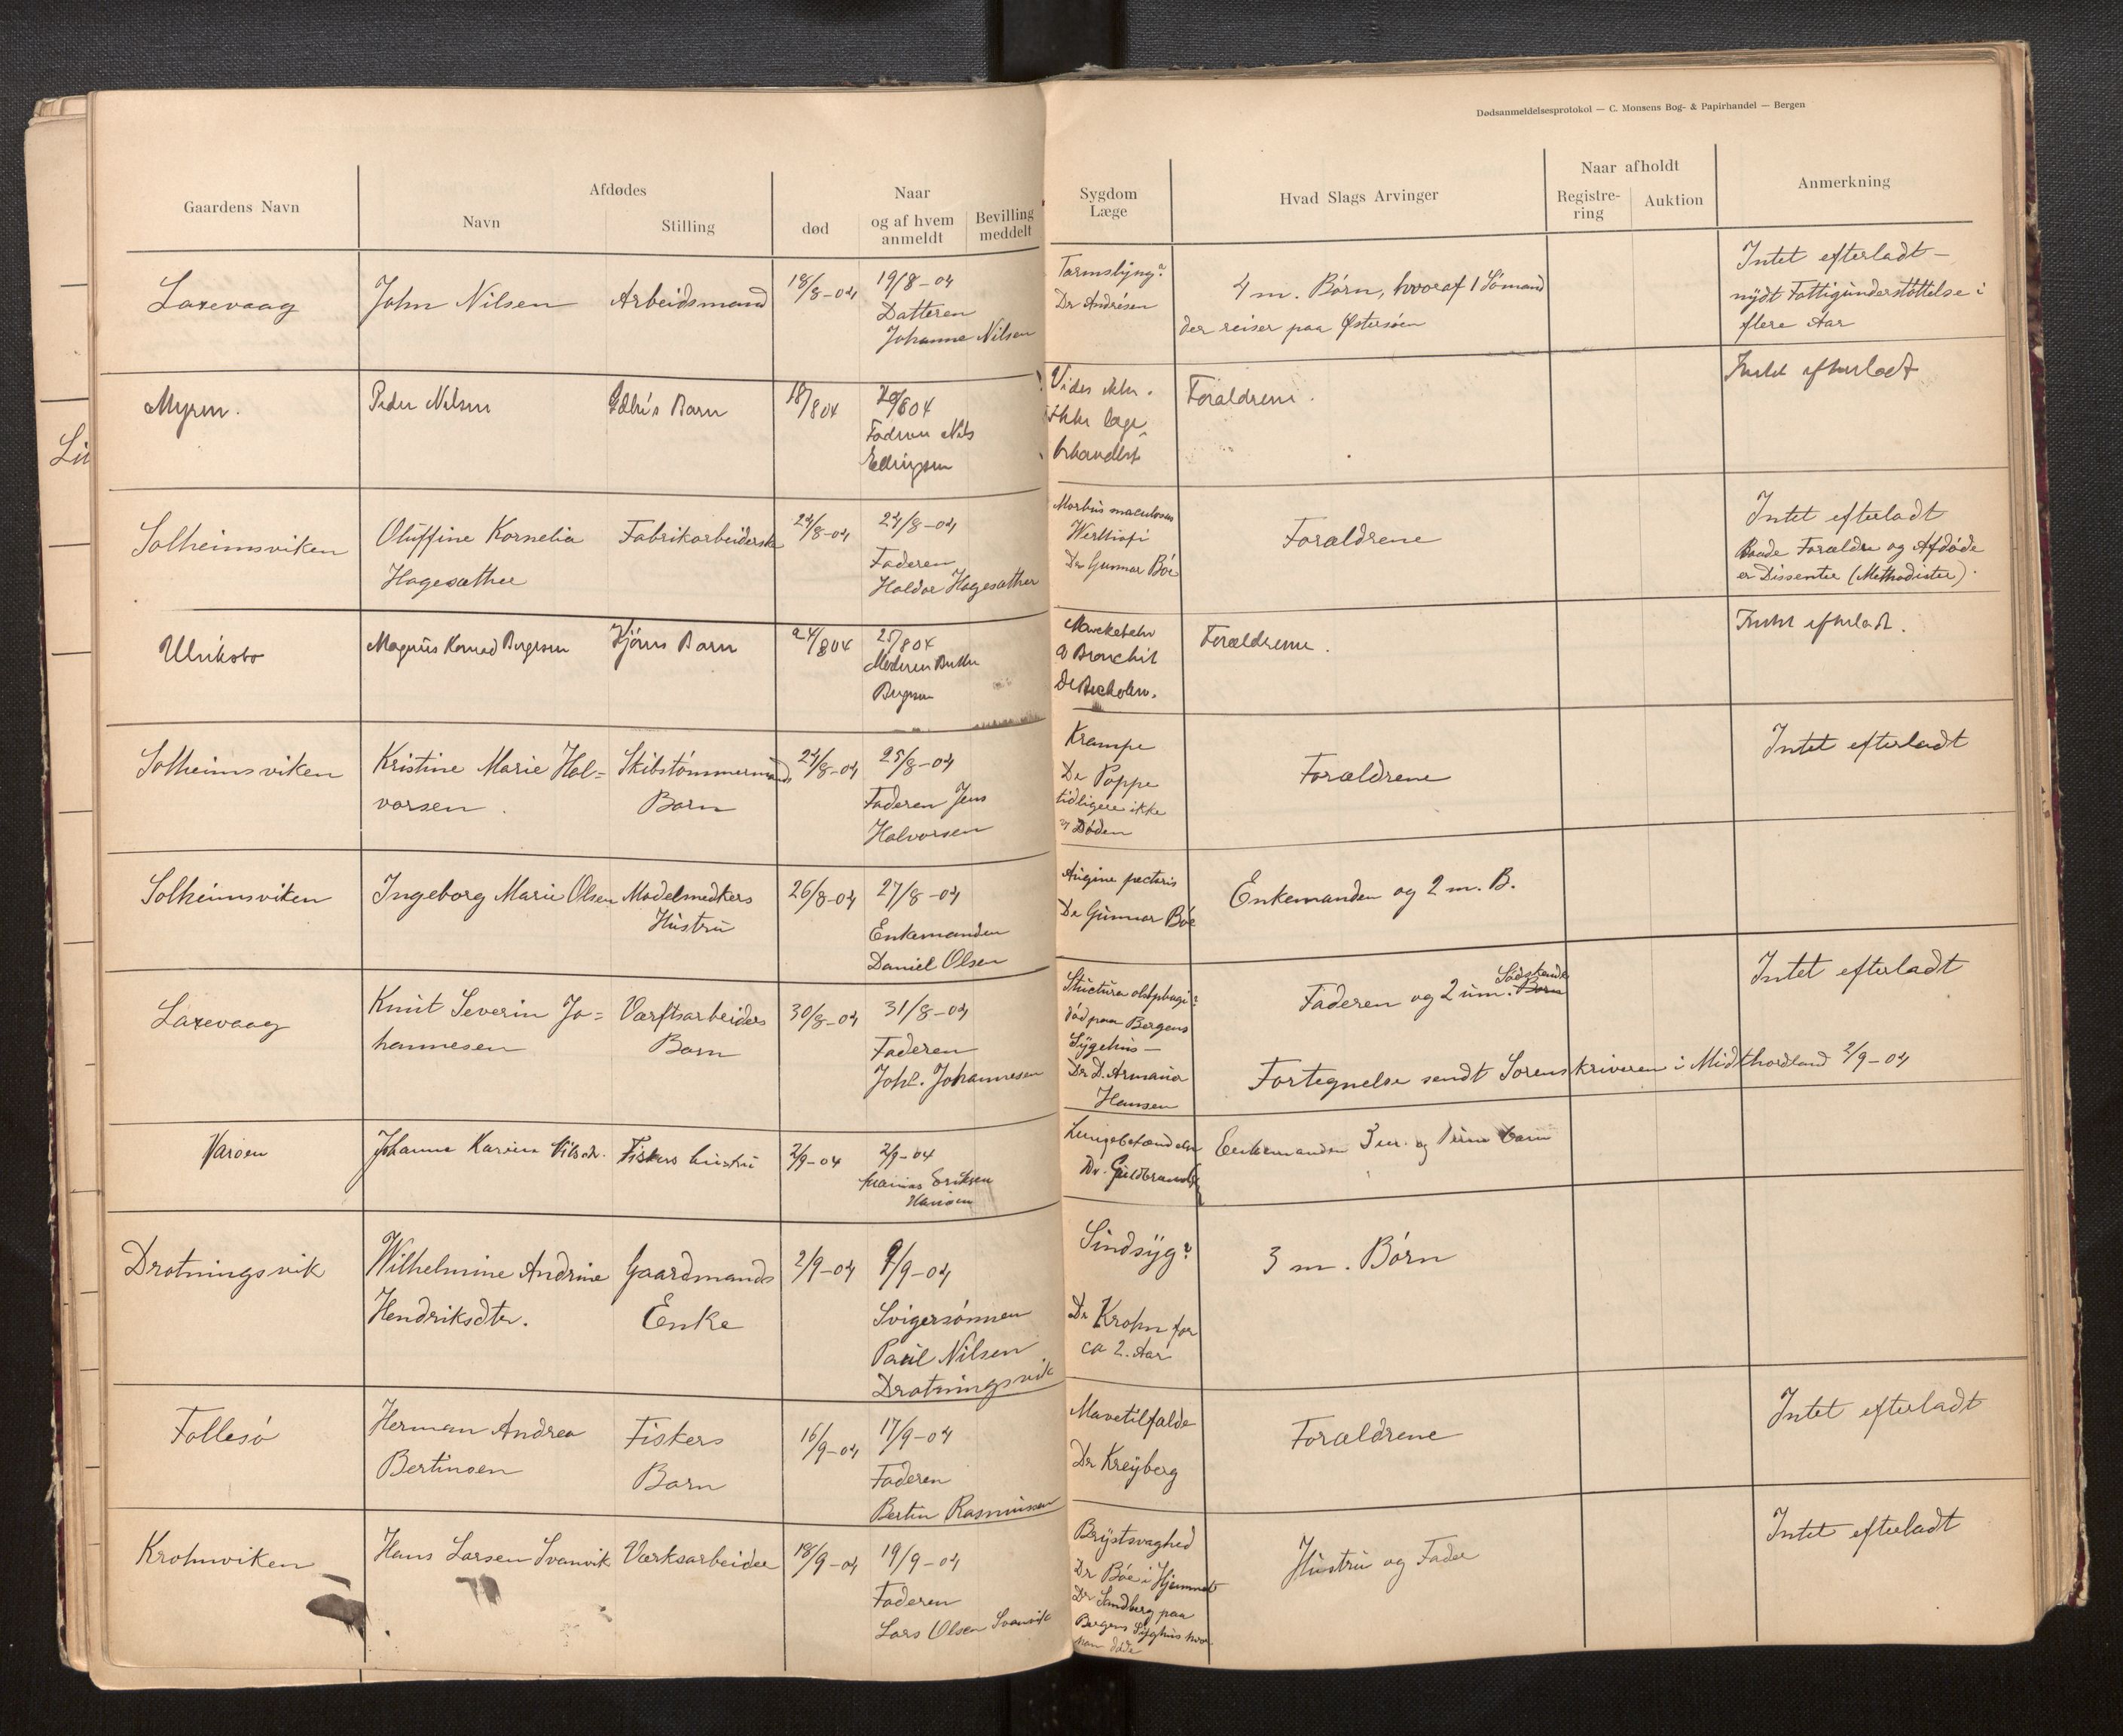 Dødsanmeldelsesprotokol — C. Monsens Bog- & Papirhandel — Bergen
Gaardens Navn
Afdødes
Navn
Stilling
død
Naar
og af hvem
anmeldt
Bevilling
meddelt
Sygdom
Læge
Hvad Slags Arvinger
Naar afholdt
Registre-
ring
Auktion
Anmerkning
Laxevaag
John Nilsen
Arbeidsmand
18/8-04
19/8-04
Datteren
Johanne Nilsen
Tarmslyng?
Dr Andrésen
4 m. Børn, hvoraf 1 Sømand
der reiser paa Østersøen
Intet efterladt —
nydt Fattigunderstøttelse i
flere Aar
Myren.
Peder Nilsen
Barn
18/804
20/804
Faderen Nils
Vides ikke.
ikke læge
behandlet
Forældrene.
Intet efterladt
Solheimsviken
Oluffine Kornelia
Hagesæther
Fabrikarbeiderske
24/8-04
24/8-04
Faderen
Haldor Hagesæther
Morbus maculosus
Werlhofi
Dr Gunnar Bøe
Forældrene
Intet efterladt
Baade Forældre og Afdøde
er Dissenter (Methodister).
Ulriksbo
Magnus Konrad Birgesen
Barn
24/804
25/804
Moderen
Bronchit
Forældrene.
Intet efterladt.
Solheimsviken
Kristine Marie Hal=
vorsen.
Skibstømmermands
Barn
24/8-04
25/8-04
Faderen Jens
Halvorsen
Krampe
Dr Poppe
tidligere ikke
v/ Døden
Forældrene
Intet efterladt
Solheimsviken
Ingeborg Marie Olsen
Modelsnedkers
Hustru
26/8-04
27/8-04
Enkemanden
Daniel Olsen
Angine pectoris
Dr Gunnar Bøe
Enkemanden og 2 m. B.
Laxevaag
Knut Severin Jo=
hannesen
Værftsarbeiders
Barn
30/8-04
31/8-04
Faderen
Johs. Johannesen
Strictura
død paa Bergens
Sygehus —
Dr D. Armauer
Hansen
Faderen og 2 um. Børn
Sødskende
Intet efterladt
Fortegnelse sendt Sorenskriveren i Midthordland 2/9-04
Johanne Karine Nilsdr.
Fiskers hustru
2/9-04
2/9-04
Eriksen
Lungebetændelse
Dr. Guldbrands
Enkemanden 3 m. og 1 um barn
Drotningsvik
Wilhelmine Andrine
Hendriksdtr.
Gaardmands
Enke
2/9-04
9/9-04
Svigersønnen
Paul Nilsen
Drotningsvik
Sindsyg?
Dr Krohn for
ca 2. Aar
3 m. Børn
Follesø
Herman Andrea
Bertinsen
Fiskers
Barn
16/9-04
17/9-04
Faderen
Bertin Rasmussen
Mavetilfælde
Dr Kreyberg
Forældrene
Intet efterladt
Krohnviken
Hans Larsen Svanvik
Værksarbeider
18/9-04
19/9-04
Faderen
Lars Olsen Svanvik
Brystsvaghed
Dr Bøe i Hjemmet
Dr Sandberg paa
Bergens Syghus hvor
han døde
Hustru og Fader
Intet efterladt